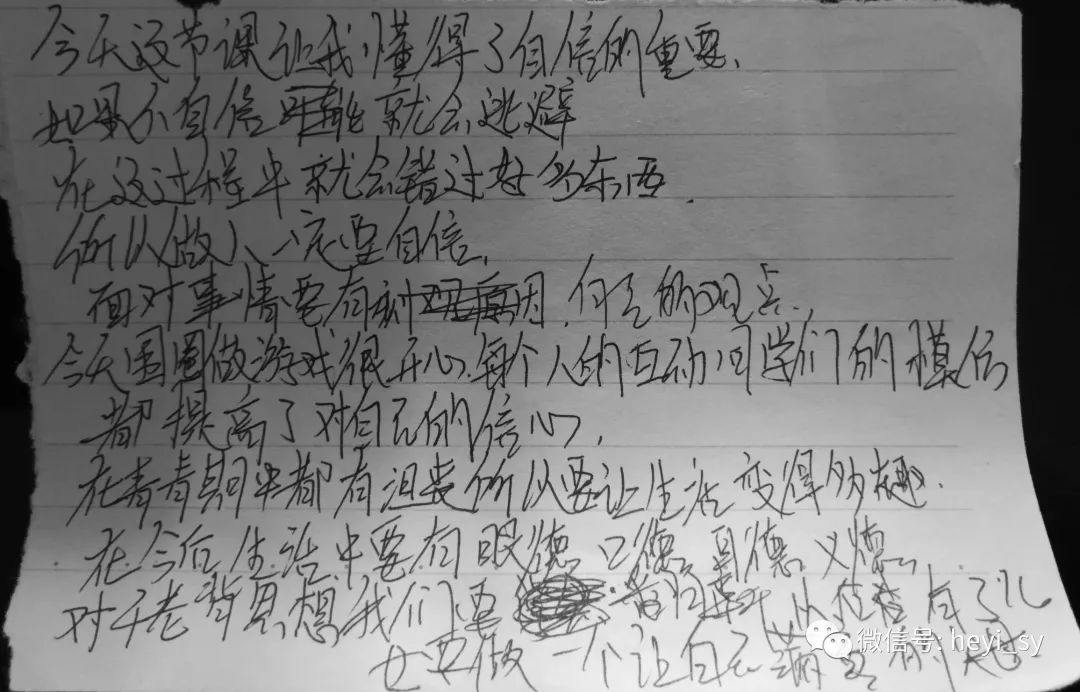 今天这节课让我懂得了自信的重要、
如果不自信 就会逃避
在这过程中就会错过好多东西.
所以做人一定要自信、
面对事情要有 自己的观点.
今天围圈做游戏很开心、每个人的互动同学们的模仿
都提高了对自己的信心,
在青春期中都有沮丧所以要让生活变得多趣.
在今后生活中要有眼德 口德 耳德 义德
对于老 思想我们要
也要做一个让自己满意的
微信号: heyi_sy